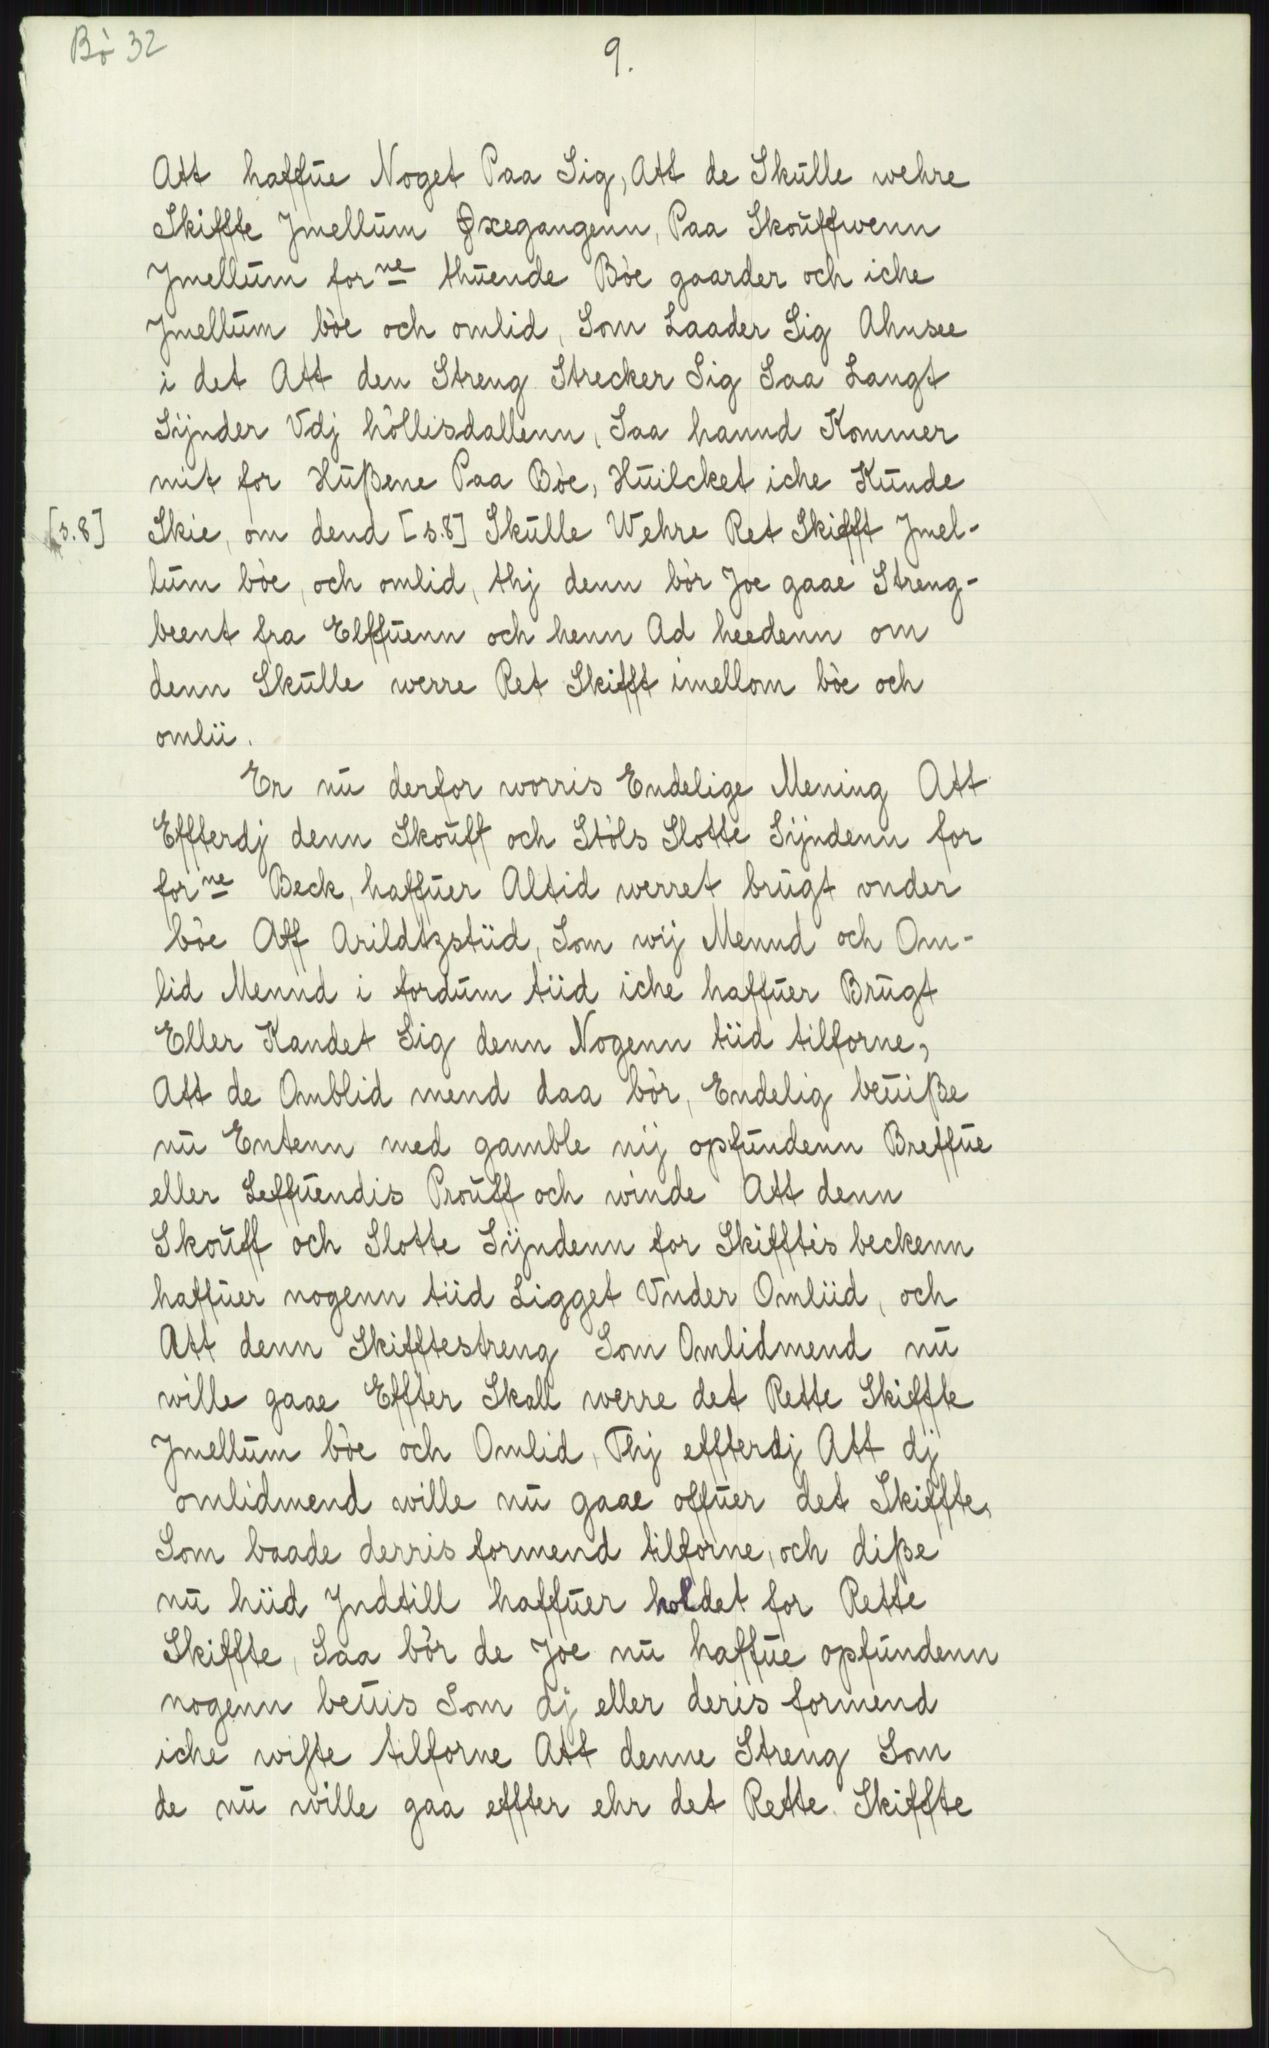 Bö 32
9.
Att haffue Noget Paa Sig, Att de Skulle wehre
Skiffte Jmellum Øxegangenn, Paa Skouffwenn
Jmellum forne thuende Böe gaarder och iche
Jmellum böe och omlid, Som Laader Sig Ahnsee
i det Att den Streng Strecker Sig Saa Langt
Sijnder Vdj höllisdallenn, Saa hannd Kommer
mit for Hußene Paa Böe, Huilcket iche Kunde
[s.8] Skie, om dend [s.8] Skulle Wehre Ret Skifft Jmel-
lum böe, och omlid, thj denn bör Joe gaae Streng-
beent fra Elffuenn och henn Ad heedenn om
denn Skulle werre Ret Skifft imellom böe och
omlii.
Er nu derfor worris Endelige Mening Att
Effterdj denn Skouff och Stöls Slotte Sijndenn for
forne Beck, haffuer Altid werret brugt vnder
böe Aff Arildtzstiid, Som wij Mennd och Om-
lid Mennd i fordum tiid iche haffuer Brugt
Eller Kandet Sig denn Nogenn tiid tilforne,
Att de Omblid mend daa bör, Endelig beuiße
nu Entenn med gamble nij opfundenn Breffue
eller Leffuendis Prouff och winde Att denn
Skouff och Slotte Sijndenn for Skifftis beckenn
haffuer nogenn tiid Ligget Vnder Omliid, och
Att denn Skifftestreng Som Omlidmend nu
wille gaae Effter Skall werre det Rette Skiffte
Jmellum böe och Omlid, Thj effterdj Att dj
omlidmend wille nu gaae offuer det Skiffte,
Som baade derris formend tilforne, och diße
nu hiid Jndtill haffuer holdet for Rette
Skiffte, Saa bör de Joe nu haffue opfundenn
nogenn beuis Som dj eller deris formend
iche wiste tilforne Att denne Streng Som
de nu wille gaa effter ehr det Rette Skiffte